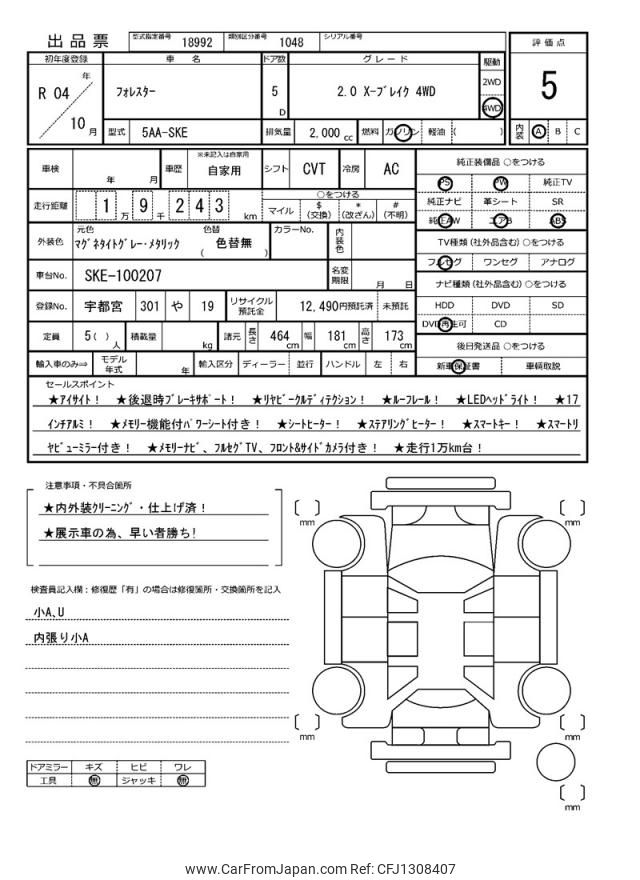 出品票 型式指定番号 18992 類別区分番号 1048 シリアル番号
初年度登録 車 名 ドア数 グレード 駆動 評価点
R 04 年 10 月 フォレスター 5 D 2.0 X-ブレイク 4WD 2WD 4WD 5
型式 5AA-SKE 排気量 2,000 cc 燃料 ガソリン 軽油 ( ) 内装 A B C
車検 年 月 車歴 ※未記入は自家用 自家用 シフト CVT 冷房 AC
純正装備品 ○をつける
PS PW 純正TV
純正ナビ 革シート SR
純正AW エアB ABS
走行距離 1 万 9 千 2 4 3 km
○をつける
マイル $ (交換) * (改ざん) # (不明)
TV種類 (社外品含む) ○をつける
フルセグ ワンセグ アナログ
外装色 元色 マグネタイトグレー・メタリック 色替 ( 色替無 ) カラーNo. 内装色
車台No. SKE-100207 名変期限 月 日
ナビ種類 (社外品含む) ○をつける
HDD DVD SD
DVD再生可 CD
登録No. 宇都宮 301 や 19 リサイクル預託金 12,490円預託済 未預託
定員 5 ( ) 人 積載量 kg 諸元 長さ 464 cm 幅 181 cm 高さ 173 cm
後日発送品 ○をつける
新車保証書 車輌取説
輸入車のみ⇒ モデル年式 年 輸入区分 ディーラー 並行 ハンドル 左 右
セールスポイント
★アイサイト! ★後退時ブレーキサポート! ★リヤビークルディテクション! ★ルーフレール! ★LEDヘッドライト! ★17
インチアルミ! ★メモリー機能付パワーシート付き! ★シートヒーター! ★ステアリングヒーター! ★スマートキー! ★スマートリ
ヤビューミラー付き! ★メモリーナビ、フルセグTV、フロント&サイドカメラ付き! ★走行1万km台!
注意事項・不具合箇所
★内外装クリーニング・仕上げ済!
★展示車の為、早い者勝ち!
検査員記入欄:修復歴「有」の場合は修復箇所・交換箇所を記入
小A、U
内張り小A
mm
mm
mm
mm
mm
ドアミラー キズ ヒビ ワレ
工具 無 ジャッキ 無
www.CarFromJapan.com Ref: CFJ1308407